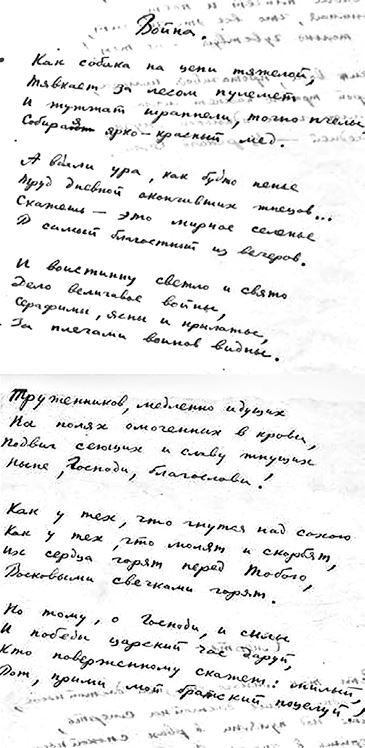 Война.
Как собака на цепи тяжелой,
Тявкает за лесом пулемет,
И жужжат шрапнели, точно пчелы,
Собирая ярко-красный мед.
А вдали ура, как будто пенье
Труд дневной окончивших жнецов...
Скажешь — это мирное селенье
В самый благостный из вечеров.
И воистину светло и свято
Дело величавое войны,
Серафимы, ясны и крылаты,
За плечами воинов видны.
Тружеников, медленно идущих
На полях омоченных в крови,
Подвиг сеющих и славу жнущих
Ныне, Господи, благослови!
Как у тех, что гнутся над сохою
Как у тех, что молят и скорбят,
Их сердца горят перед Тобою,
Восковыми свечками горят.
Но тому, о Господи, и силы
И победы царский час даруй,
Кто поверженному скажет: милый,
Вот, прими мой братский поцелуй!